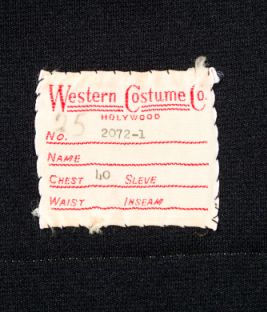 Western Costume Co.
HOLYWOOD
25
No. 2072-1
NAME
CHEST 40 SLEVE
WAIST INSEAM